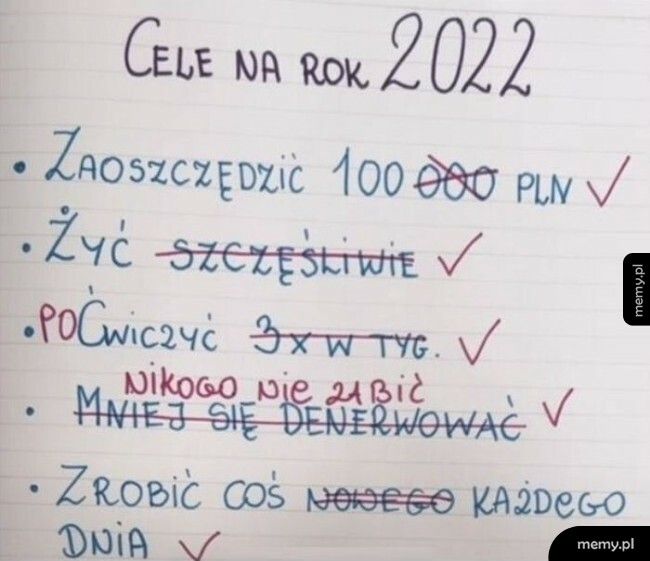 CELE NA ROK 2022
• ZAOSZCZĘDZIĆ 100 000 PLN ✓
• ŻYĆ SZCZĘŚLIWIE ✓
• POĆWICZYĆ 3 X W TYG. ✓
NIKOGO NIE ZABIĆ
• MNIEJ SIĘ DENERWOWAĆ ✓
• ZROBIĆ COŚ NOWEGO KAŻDEGO
DNIA ✓
memy.pl
memy.pl